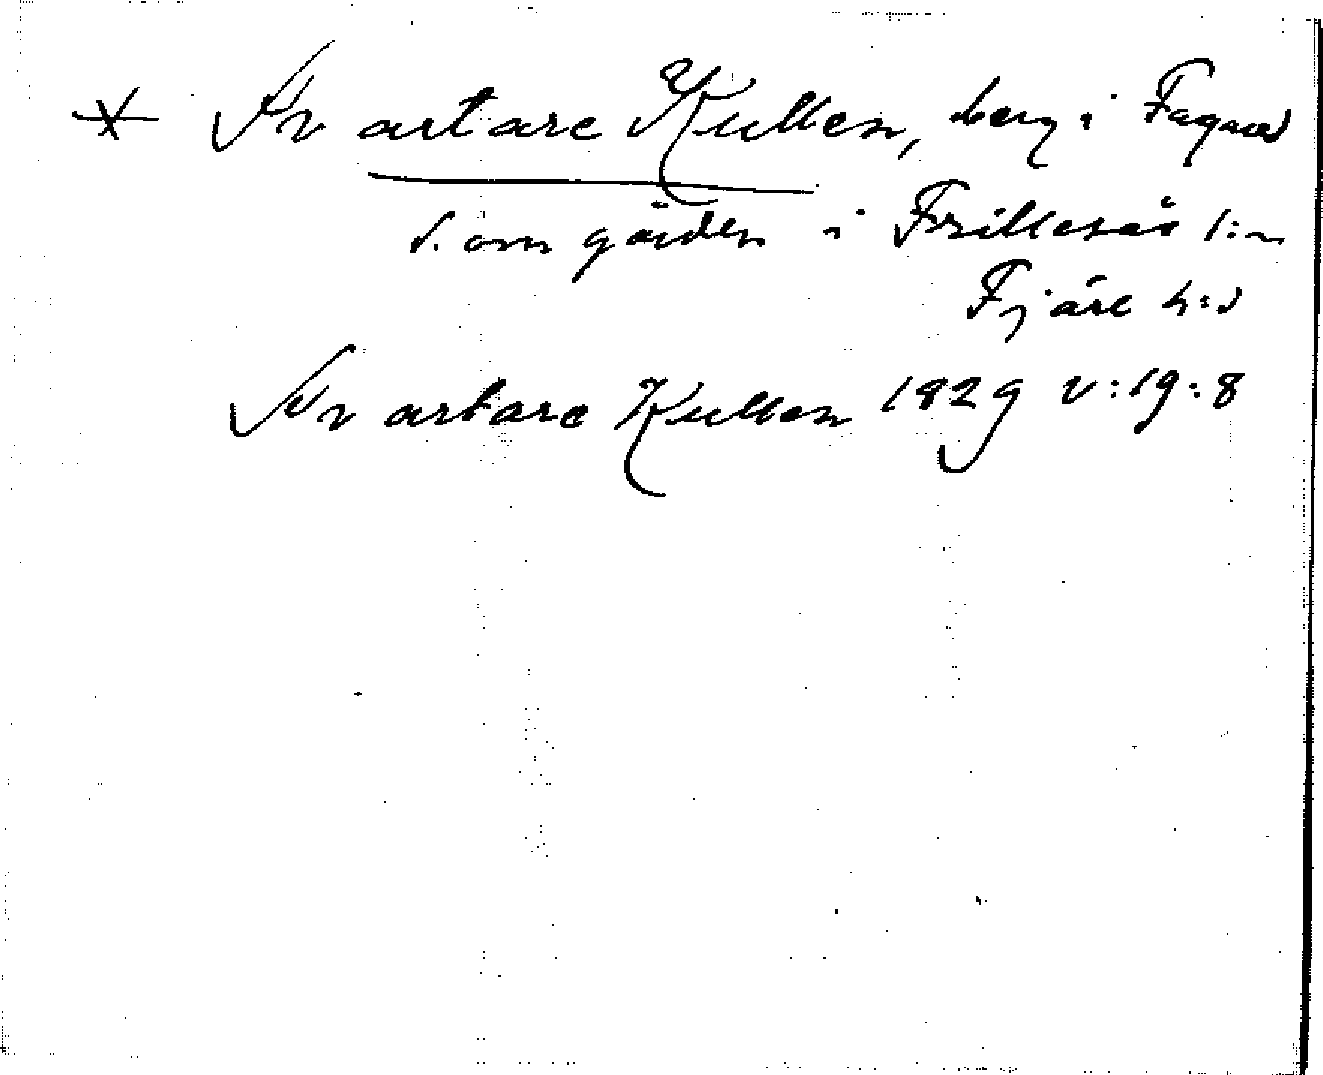 * Svartare Kullen, berg i Fagared
S. om gården i Frillesås s:n
Fjäre h:d
Svartare Kullen 1829 v:19:8